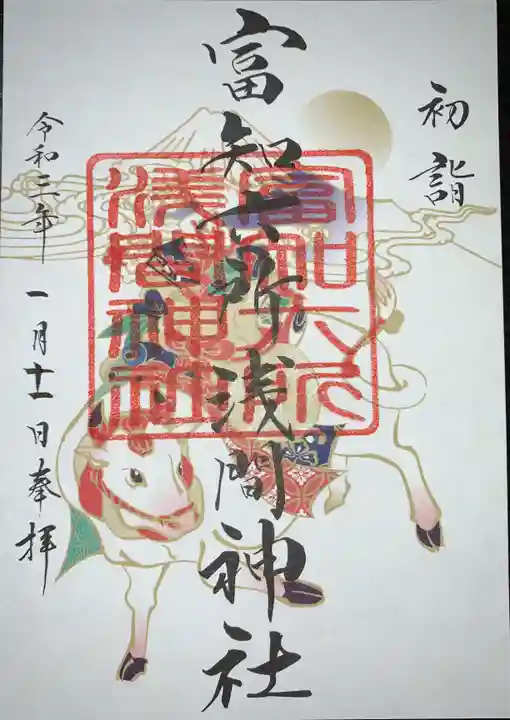 初詣
富知六所浅間神社
令和三年一月十一日奉拝
富知六所
淺間神社